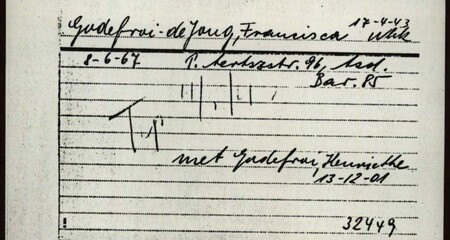 Godefroi-de Jong, Francisca 17-4-43
8-6-67 P. Aertszstr. 96, Asd.
Bar. 85
met Godefroi, Henriette,
13-12-01
32449